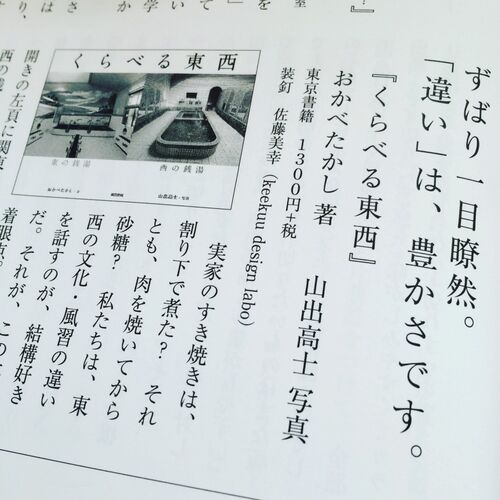 ずばり一目瞭然。
「違い」は、豊かさです。
『くらべる東西』
おかべたかし 著　山出高士 写真
東京書籍　1300円+税
装釘　佐藤美幸 (keekuu design labo)
くらべる東西
東の銭湯
西の銭湯
実家のすき焼きは、
割り下で煮た?　それ
とも、肉を焼いてから
砂糖?　私たちは、東
西の文化・風習の違い
を話すのが、結構好き
だ。それが、この
着眼点。
開きの左頁に関東